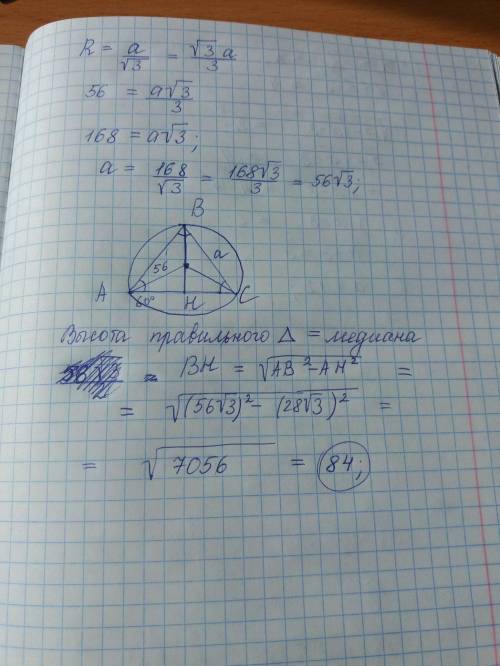 R = a/√3 = √3/3 a
56 = a√3/3
168 = a√3;
a = 168/√3 = 168√3/3 = 56√3;
B
56 a
A 60° H C
Высота правильного Δ = медиана
= BH = √(AB² - AH²) =
= √((56√3)² - (28√3)²) =
= √7056 = 84;